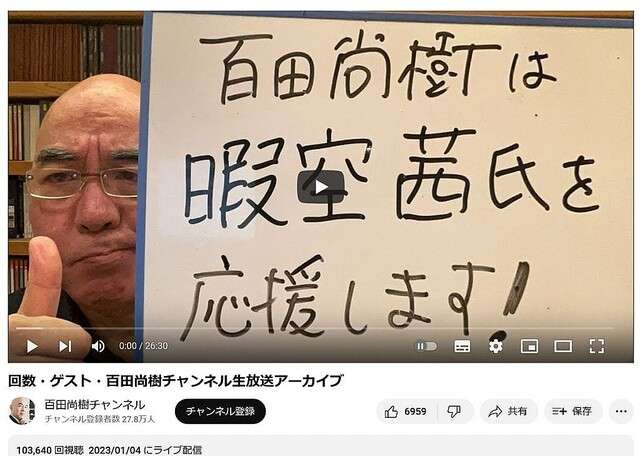 百田尚樹は
暇空茜氏を
応援します!
0:00 / 26:30
回数・ゲスト・百田尚樹チャンネル生放送アーカイブ
百田尚樹チャンネル
チャンネル登録者数 27.8万人
チャンネル登録
6959
共有
保存
103,640 回視聴 2023/01/04 にライブ配信